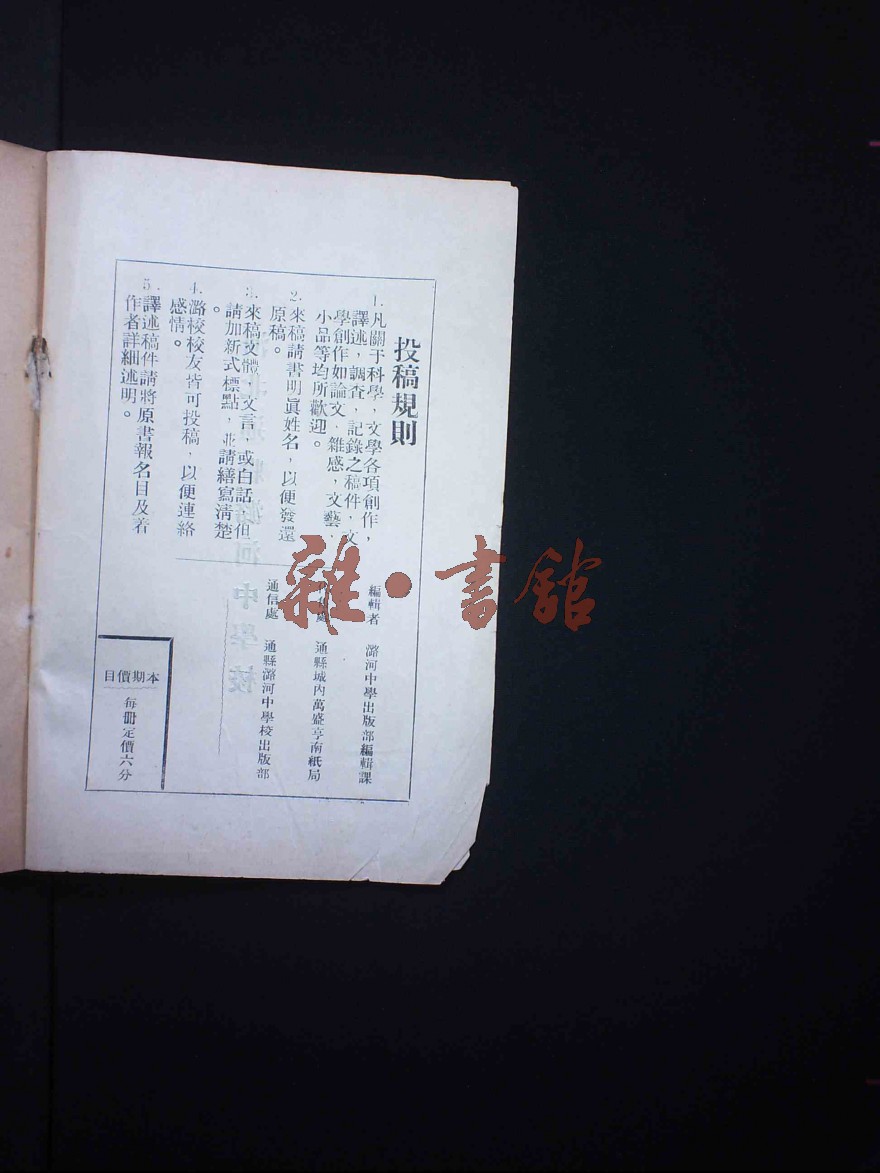 投稿規則
1. 凡關于科學，文學各項創作，
譯述，調查，記錄之稿件，文
學創作如論文，雜感，文藝，
小品等均所歡迎。
2. 來稿請書明眞姓名，以便發還
原稿。
3. 來稿文體，文言，或白話，但
請加新式標點，並請繕寫清楚
。
4. 潞校校友皆可投稿，以便連絡
感情。
5. 譯述稿件請將原書報名目及着
作者詳細述明。
編輯者　潞河中學出版部編輯課
通縣城內萬盛亨南紙局
通信處　通縣潞河中學校出版部
本期價目
每冊定價六分
雜·書館